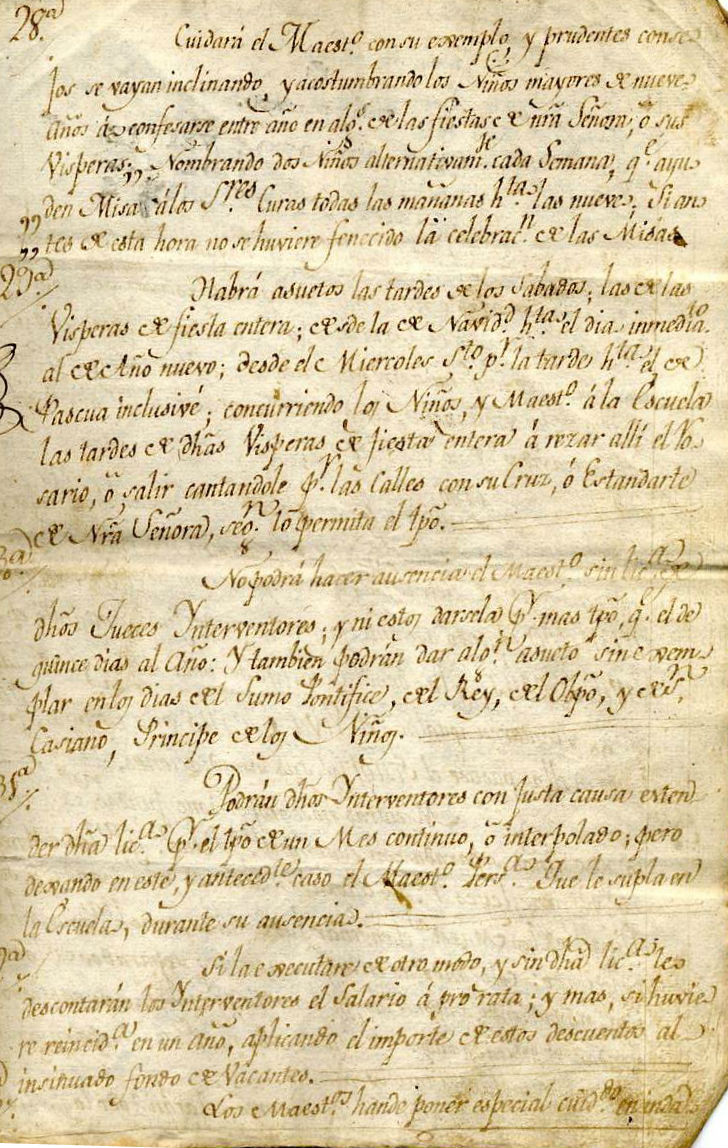 28.ª
Cuidará el Maest.º con su exemplo, y prudentes conse-
jos se vayan inclinando, y acostumbrando los Niños mayores de nueve
años á confesarse entre año en alg.ˢ de las fiestas de nr̃a Señora, ò sus
Visperas: Nombrando dos Niños alternativam.ᵗᵉ cada Semana, q.ᵉ ayu-
„ den Misa á los S.ʳᵉˢ Curas todas las mañanas h.ᵗᵃ las nueve; Si an-
„ tes de esta hora no se huviere fenecido la celebrac.ⁿ de las Misas.
29.ª
Habrá asuetos las tardes de los Sabados; las de las
Visperas de fiesta entera; desde la de Navid.ᵈ h.ᵗᵃ el dia inmediato
al de Año nuevo; desde el Miercoles S.ᵗᵒ p.ʳ la tarde h.ᵗᵃ el de
Pascua inclusivé; concurriendo los Niños, y Maest.º á la Escuela
las tardes de dhãs Visperas de fiesta entera á rezar alli el Ro-
sario, ò salir cantandole p.ʳ las Calles con su Cruz, ó Estandarte
de Nr̃a Señora, seg.ⁿ lo permita el tp̃o.
30.ª
No podrá hacer ausencia el Maest.º sin lic.ª de
dhõs Jueces Ynterventores; y ni estos darsela p.ʳ mas tp̃o, q.ᵉ el de
quince dias al Año: Y tambien podrán dar alg.ⁿ asueto sin exem-
plar en los dias del Sumo Pontifice, del Rey, del Obp̃o, y de S.ⁿ
Casiano, Principe de los Niños.
31.ª
Podrán dhõs Ynterventores con justa causa exten-
der dhã lic.ª p.ʳ el tp̃o de un Mes continuo, ò interpolado; pero
dexando en este, y anteced.ᵗᵉ caso el Maest.º Pers.ª que le supla en
la Escuela, durante su ausencia.
Si la executare de otro modo, y sin dhã lic.ª le
descontarán los Ynterventores el Salario á pro rata; y mas, si huvie-
re reincid.ª en un Año, aplicando el importe de estos descuentos al
insinuado fondo de Vacantes.
Los Maest.ºˢ han de poner especial cuid.ᵈᵒ en indag